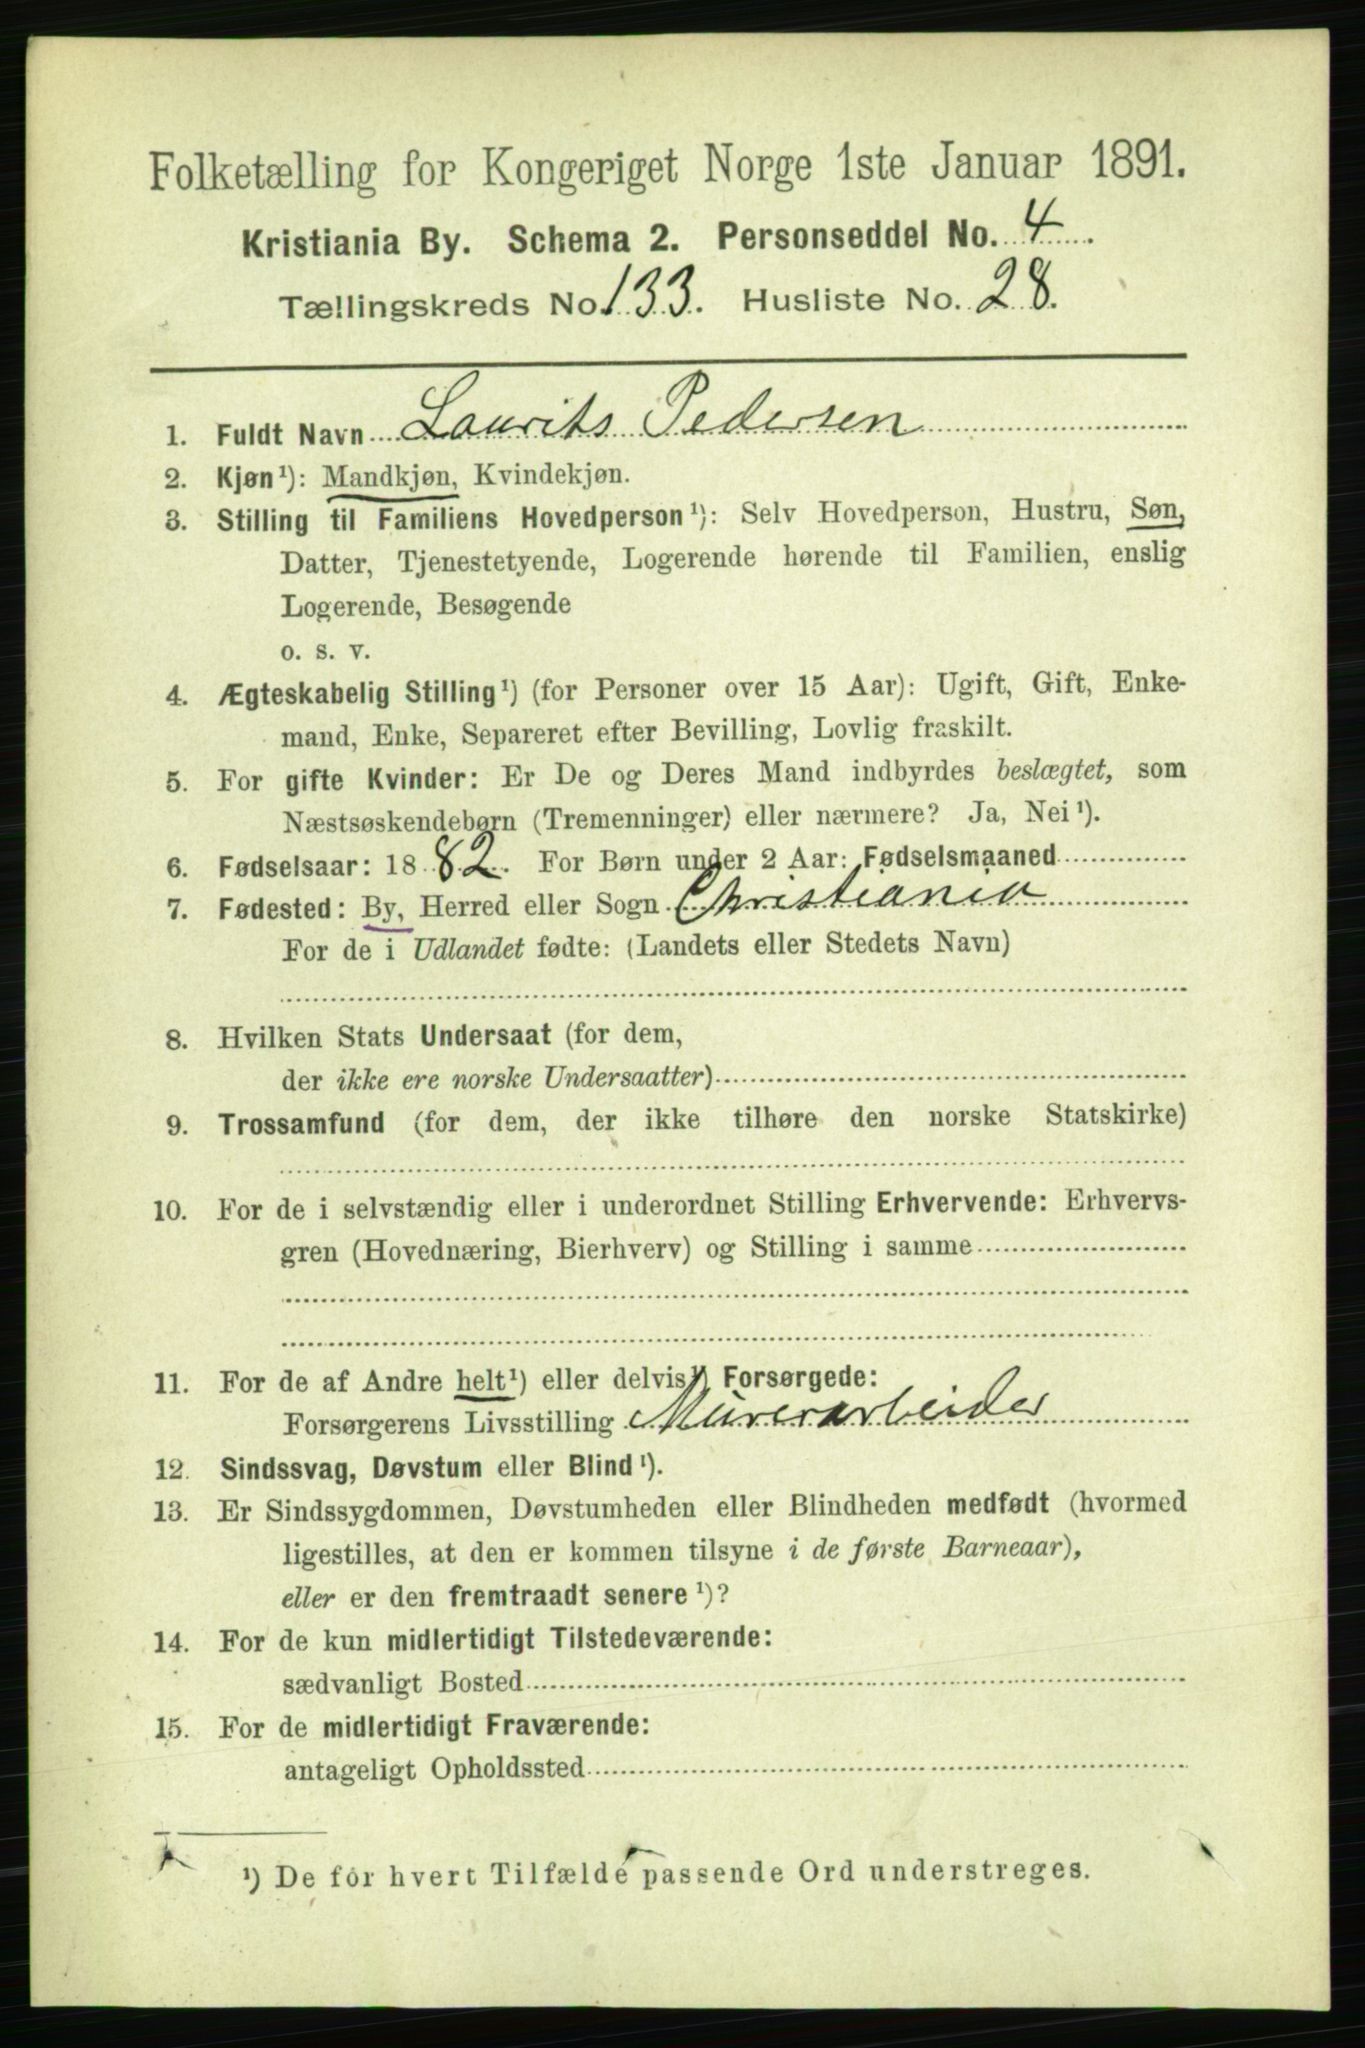 Folketælling for Kongeriget Norge 1ste Januar 1891.
Kristiania By. Schema 2. Personseddel No. 4
Tællingskreds No. 133. Husliste No. 28.
1. Fuldt Navn Laurits Pedersen
2. Kjøn¹): Mandkjøn, Kvindekjøn.
3. Stilling til Familiens Hovedperson¹): Selv Hovedperson, Hustru, Søn,
Datter, Tjenestetyende, Logerende hørende til Familien, enslig
Logerende, Besøgende
o. s. v.
4. Ægteskabelig Stilling¹) (for Personer over 15 Aar): Ugift, Gift, Enke-
mand, Enke, Separeret efter Bevilling, Lovlig fraskilt.
5. For gifte Kvinder: Er De og Deres Mand indbyrdes beslægtet, som
Næstsøskendebørn (Tremenninger) eller nærmere? Ja, Nei¹).
6. Fødselsaar: 1882. For Børn under 2 Aar: Fødselsmaaned
7. Fødested: By, Herred eller Sogn Christiania
For de i Udlandet fødte: (Landets eller Stedets Navn)
8. Hvilken Stats Undersaat (for dem,
der ikke ere norske Undersaatter)
9. Trossamfund (for dem, der ikke tilhøre den norske Statskirke)
10. For de i selvstændig eller i underordnet Stilling Erhvervende: Erhvervs-
gren (Hovednæring, Bierhverv) og Stilling i samme
11. For de af Andre helt¹) eller delvis¹) Forsørgede:
Forsørgerens Livsstilling Murerarbeider
12. Sindssvag, Døvstum eller Blind¹).
13. Er Sindssygdommen, Døvstumheden eller Blindheden medfødt (hvormed
ligestilles, at den er kommen tilsyne i de første Barneaar),
eller er den fremtraadt senere¹)?
14. For de kun midlertidigt Tilstedeværende:
sædvanligt Bosted
15. For de midlertidigt Fraværende:
antageligt Opholdssted
¹) De for hvert Tilfælde passende Ord understreges.